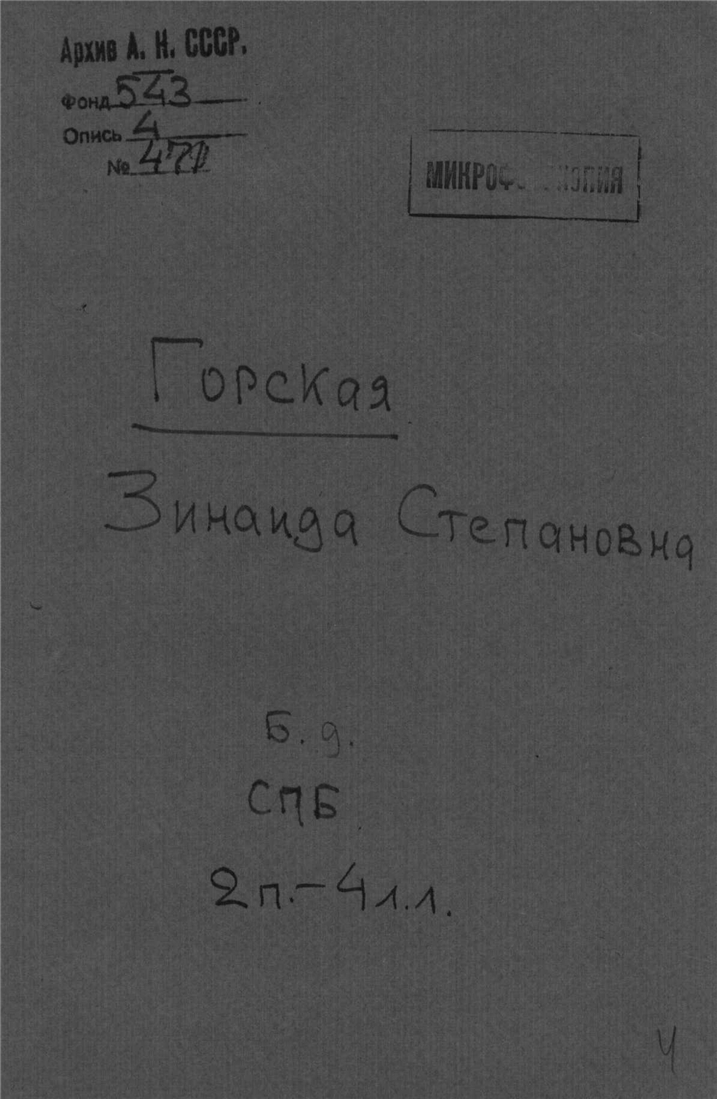 Архив А. Н. СССР.
Фонд 543
Опись 4
№
МИКРОФОТОКОПИЯ
Горская
Зинаида Степановна
Б. д.
СПБ
2 п. – 4 л.л.
4